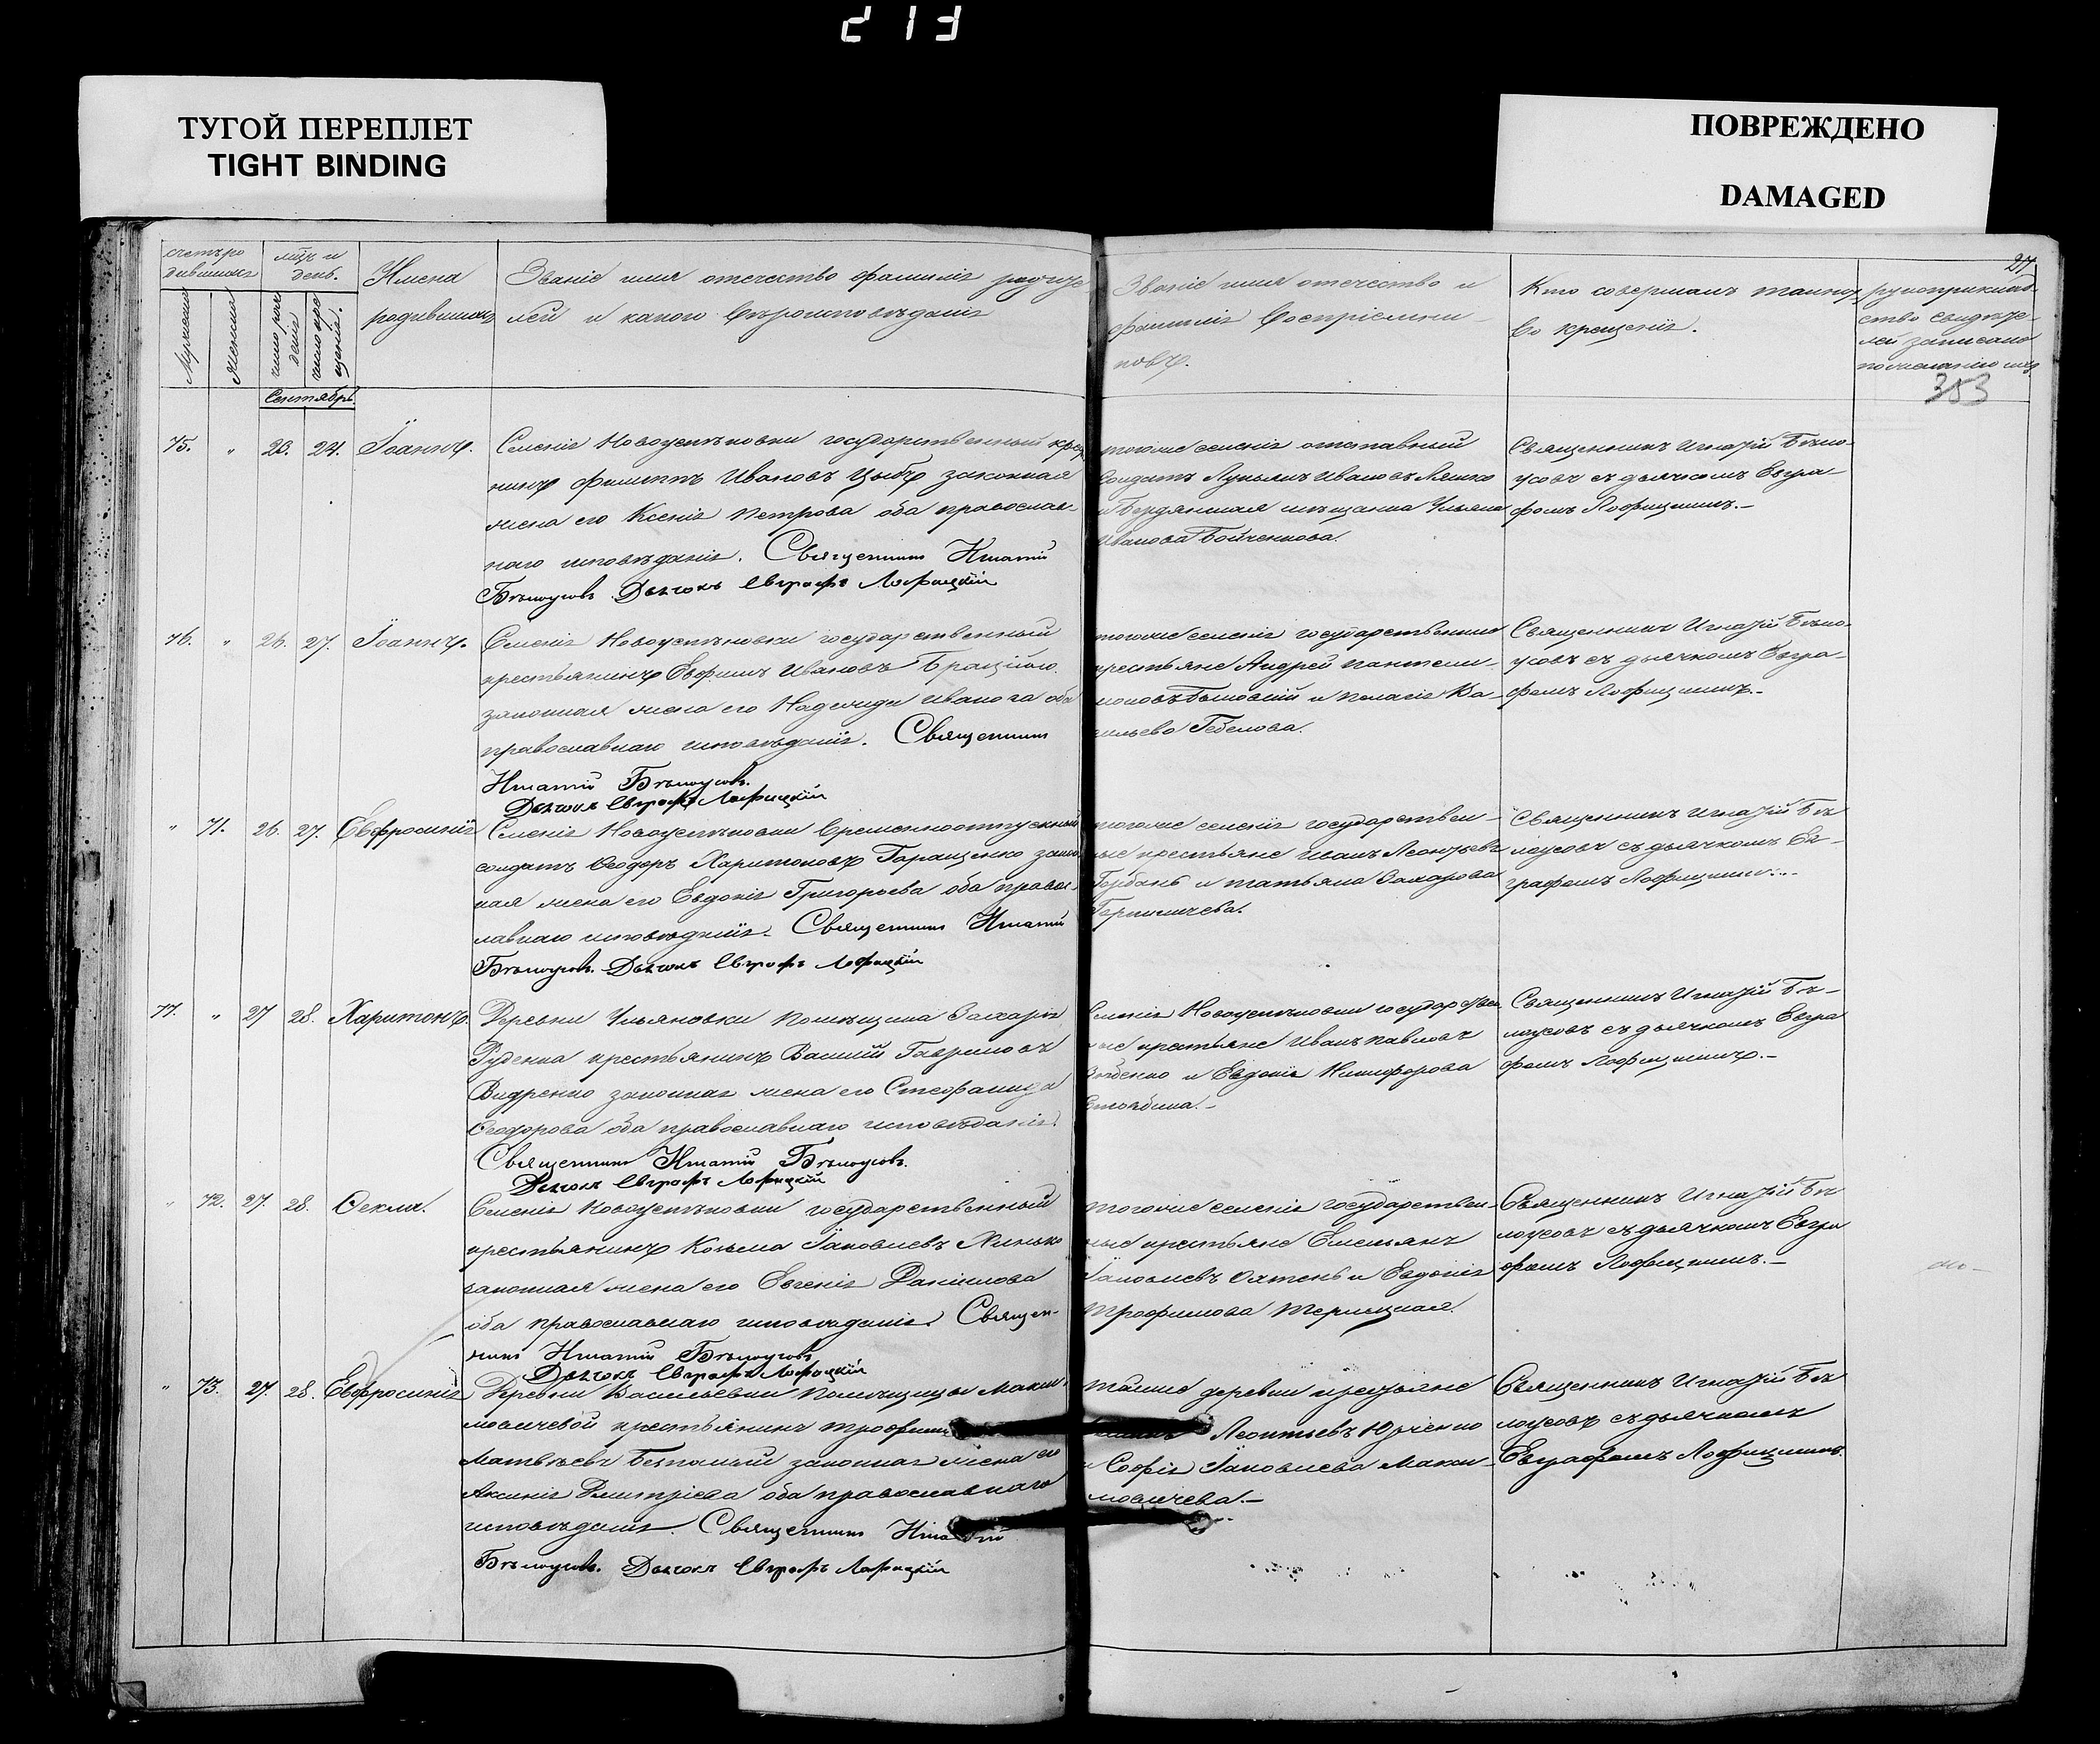 213
ТУГОЙ ПЕРЕПЛЕТ
TIGHT BINDING
ПОВРЕЖДЕНО
DAMAGED
27
353
Имена
родившихъ
Званіе имя отечество фамилія родите
лей и какого вѣроисповѣданія
Званіе имя отечество и
фамилія воспріемни-
ковъ.
Кто совершалъ таинст
во крещенія.
рукоприклад-
ство свидѣте-
лей записано
по желанію ихъ
Сентябрь.
75. " 23. 24. Іоаннъ.
Селенія Новоуспѣновки государственный крес
нинъ Филиппъ Ивановъ Цыбъ законная
жена его Ксенія Петрова оба православ-
наго исповѣданія. Священникъ Игнатій
Бѣлоусовъ. Дьячокъ Евграфъ Лофицкій
тогоже селенія отставный
солдатъ Лукьянъ Ивановъ Ляшко
и Бердянская мѣщанка Ульяна
Иванова Бойченкова.
Священникъ Игнатій Бѣло-
усовъ съ дьячкомъ Евгра-
фомъ Лофицкимъ.-
76. " 26. 27. Іоаннъ.
Селенія Новоуспѣновки государственный
крестьянинъ Евфимъ Ивановъ
законная жена его Надежда Иванова оба
православнаго исповѣданія. Священникъ
Игнатій Бѣлоусовъ.
Дьячокъ Евграфъ Лофицкій
тогоже селенія государственные
крестьяне Андрей Пантели-
моновъ и Пелагія Ва-
сильева
Священникъ Игнатій Бѣло-
усовъ съ дьячкомъ Евгра-
фомъ Лофицкимъ.-
" 71. 26. 27. Евфросинія
Селенія Новоуспѣновки временноотпускный
солдатъ Ѳеодоръ Харитоновъ Геращенко закон
ная жена его Евдокія Григорьева оба правос-
лавнаго исповѣданія. Священникъ Игнатій
Бѣлоусовъ. Дьячокъ Евграфъ Лофицкій
тогоже селенія государствен-
ные крестьяне Иванъ Леонтьевъ
Горбань и Татьяна Захарова
Священникъ Игнатій Бѣ
лоусовъ съ дьячкомъ Ев-
графомъ Лофицкимъ.-
77. " 27 28. Харитонъ.
Деревни Ульяновки помѣщика Захарія
Руденка крестьянинъ Василій Гавриловъ
законная жена его Стефанида
Ѳеодорова оба православнаго исповѣданія.
Священникъ Игнатій Бѣлоусовъ.
Дьячокъ Евграфъ Лофицкій
Селенія Новоуспѣновки государствен
ные крестьяне Иванъ Павловъ
и Евдокія Никифорова
Священникъ Игнатій Бѣ-
лоусовъ съ дьячкомъ Евгра
фомъ Лофицкимъ.-
" 72. 27. 28. Ѳекла.
Селенія Новоуспѣновки государственный
крестьянинъ Козьма Іаковлевъ
законная жена его Евгенія Даніилова
оба православнаго исповѣданія. Священ-
никъ Игнатій Бѣлоусовъ.
Дьячокъ Евграфъ Лофицкій
тогоже селенія государствен-
ные крестьяне Емельянъ
Іаковлевъ и Евдокія
Трофимова
Священникъ Игнатій Бѣ
лоусовъ съ дьячкомъ Евгра
фомъ Лофицкимъ.-
" 73. 27. 28. Евфросинія
Деревни Васильевки помѣщицы Макси
мовичевой крестьянинъ Трофимъ
Матвѣевъ законная жена его
Аксинія Димитріева оба православнаго
исповѣданія. Священникъ Игнатій
Бѣлоусовъ. Дьячокъ Евграфъ Лофицкій
тойже деревни крестьяне
Леонтьевъ Юрченко
и Софія Іаковлева Макси-
мовичева.-
Священникъ Игнатій Бѣ
лоусовъ съ дьячкомъ
Евграфомъ Лофицкимъ.